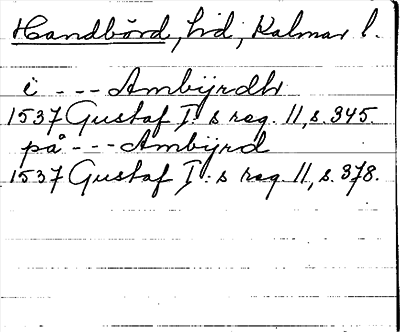 Handbörd, hd, Kalmar l.
i --- Ambijrdh
1537 Gustaf I:s reg. 11, s. 345.
på --- Ambijrd
1537 Gustaf I:s reg. 11, s. 378.